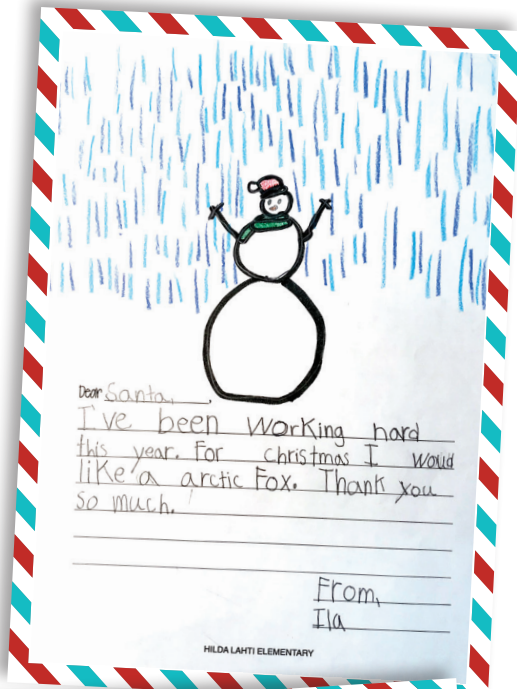 Dear Santa,
I've been working hard
this year. For christmas I woud
like a arctic Fox. Thank you
so much.
From,
Ila
HILDA LAHTI ELEMENTARY